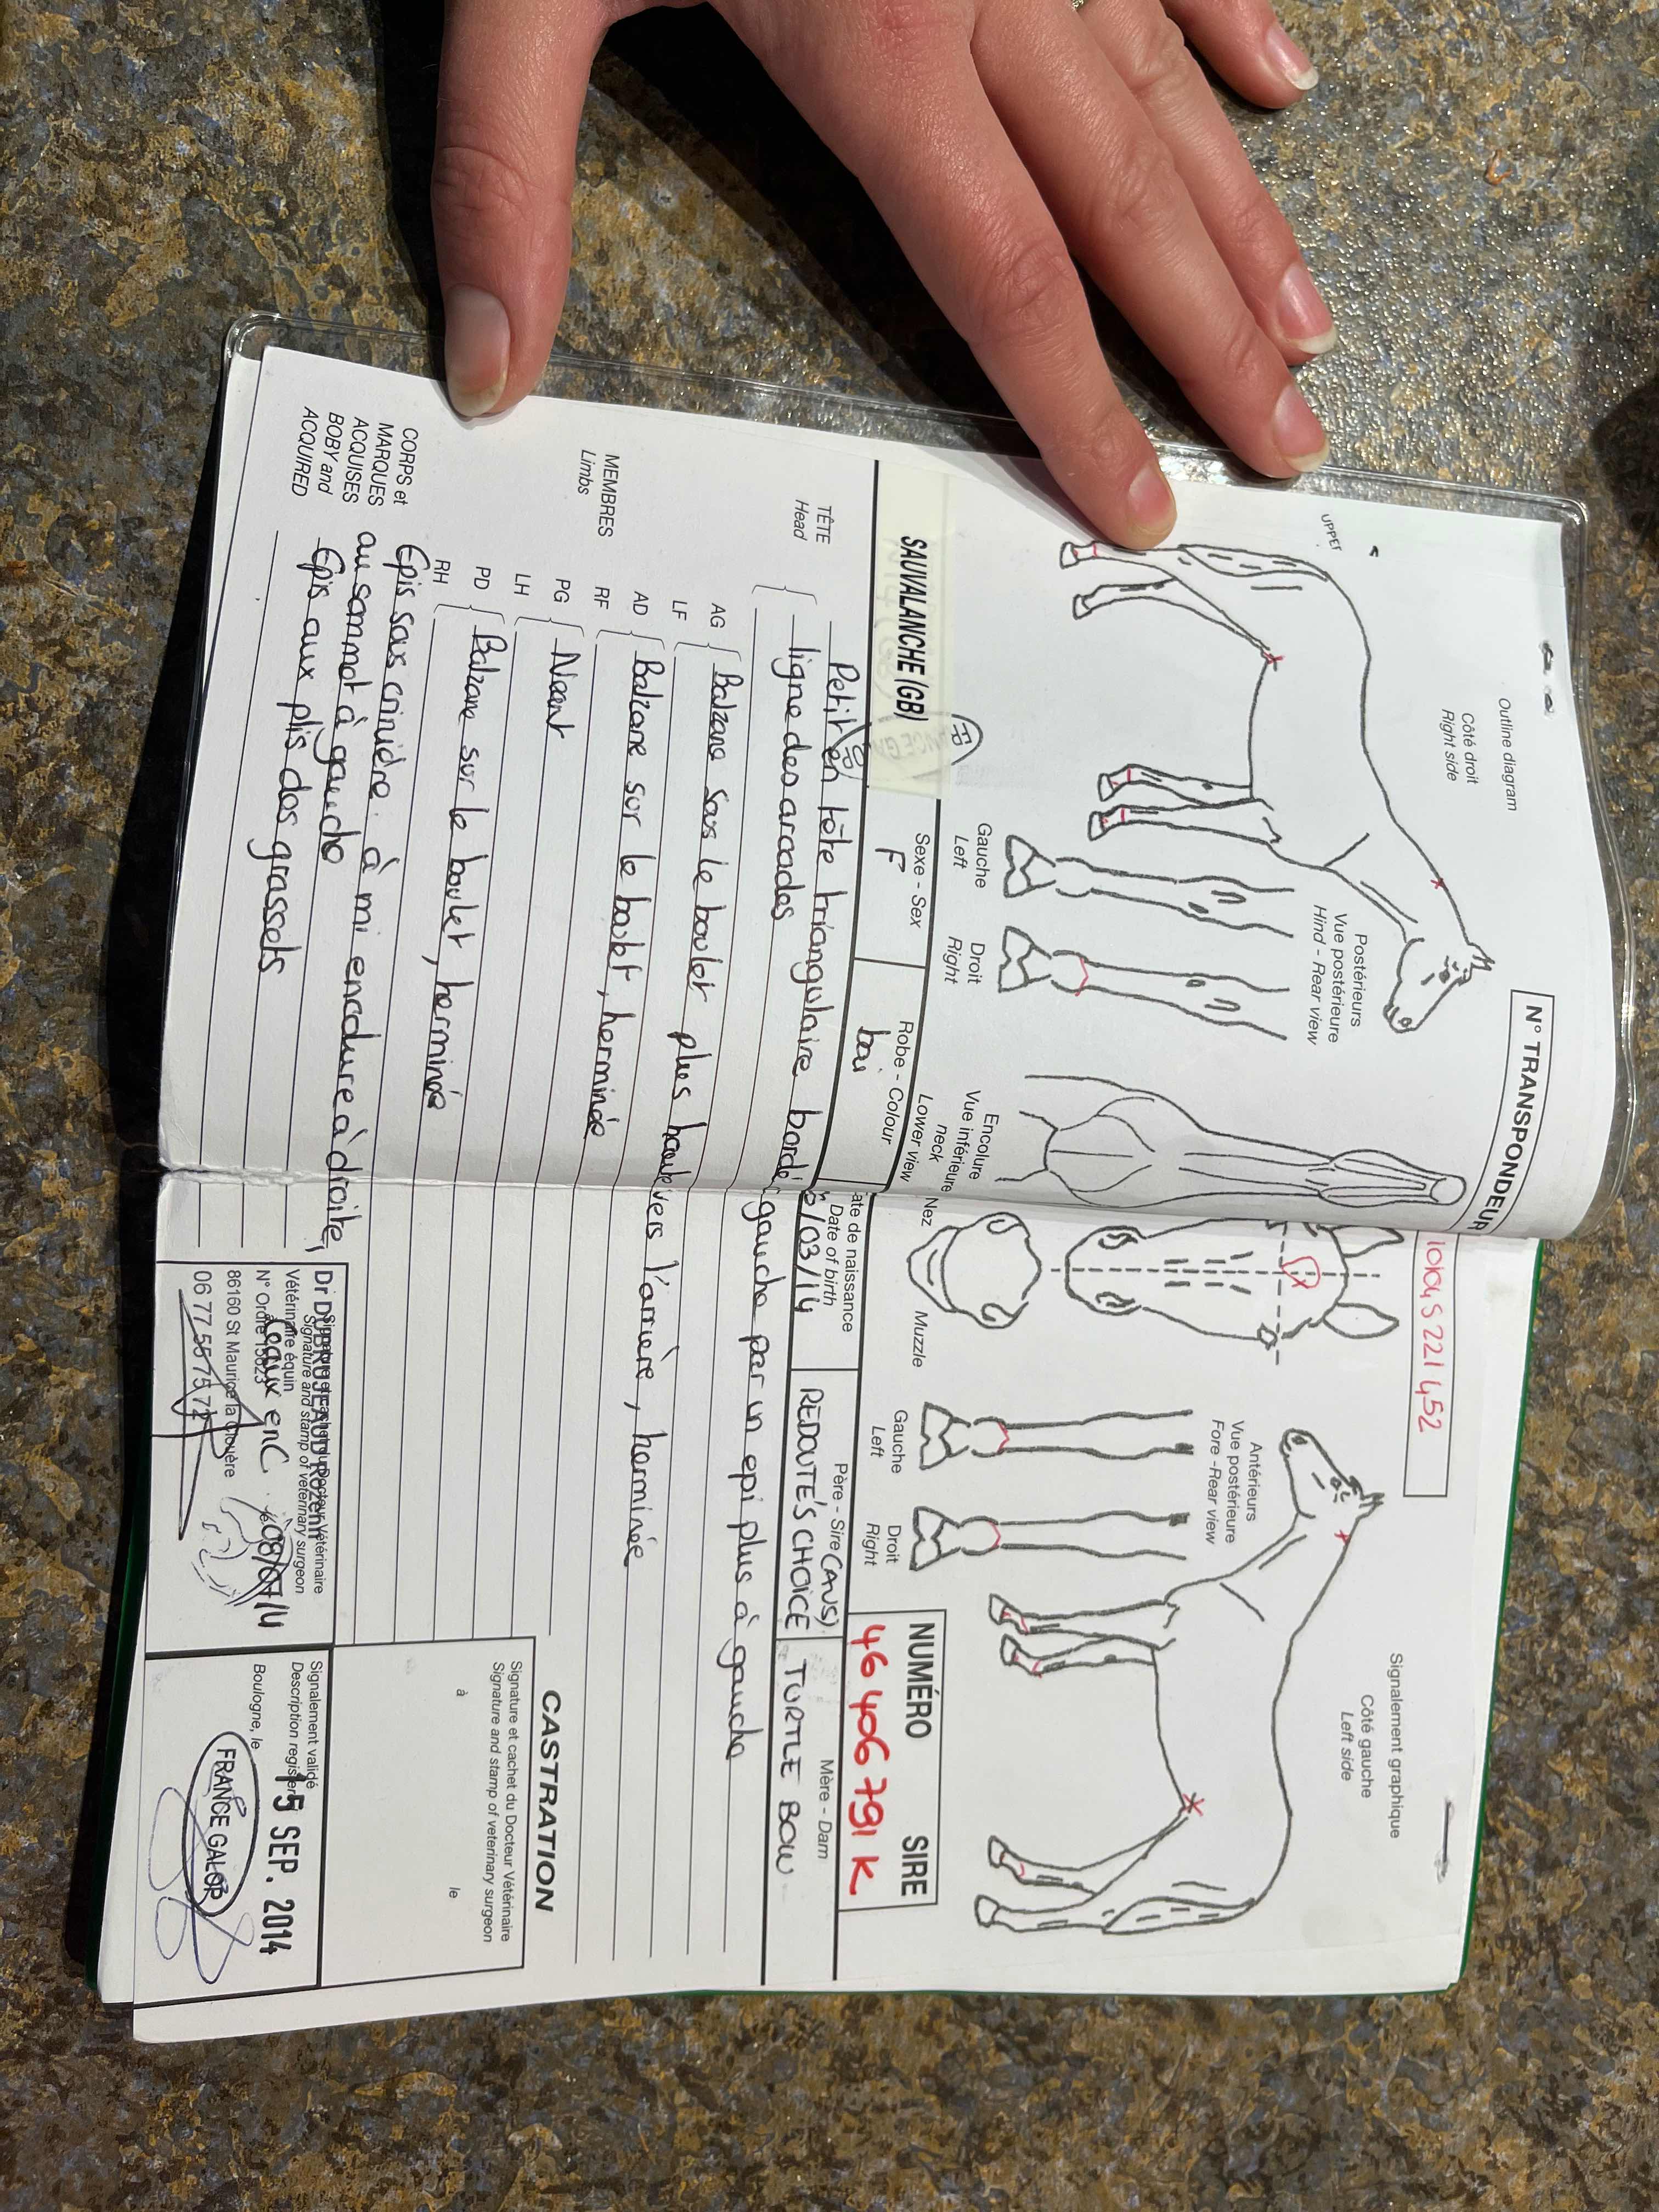 N° TRANSPONDEUR
Outline diagram
Côté droit
Right side
UPPER
Postérieurs
Vue postérieure
Hind - Rear view
Gauche
Left
Droit
Right
Encolure
Vue inférieure
neck
Lower view
Nez
Muzzle
Antérieurs
Vue postérieure
Fore - Rear view
Gauche
Left
Droit
Right
Signalement graphique
Côté gauche
Left side
NUMÉRO SIRE
46 406 791 K
SAUVALANCHE (GB)
Sexe - Sex
F
Robe - Colour
bai
ate de naissance
Date of birth
/03/14
Père - Sire (AUS)
REDOUTE'S CHOICE
Mère - Dam
TURTLE BOW
TÊTE
Head
Petit en tête triangulaire bordé, gauche par un epi plus à gauche
ligne des arcades
MEMBRES
Limbs
AG
LF
Balzane sous le boulet plus haute vers l'arrière, herminée
AD
RF
Balzane sur le boulet, herminée
PG
LH
Néant
PD
RH
Balzane sur le boulet, herminée
CORPS et
MARQUES
ACQUISES
BOBY and
ACQUIRED
Epis sous crinière : à mi encolure à droite,
au sommet à gauche
Epis aux plis des grassets
CASTRATION
Signature et cachet du Docteur Vétérinaire
Signature and stamp of veterinary surgeon
à le
Dr DUBRUJEAUD Rozenn
Vétérinaire équin
Signature and stamp of veterinary surgeon
N° Ordre 15623
86160 St Maurice la Clouère
06 77 55 75 72
08/07/14
Signalement validé
Description registered
Boulogne, le
15 SEP. 2014
FRANCE GALOP